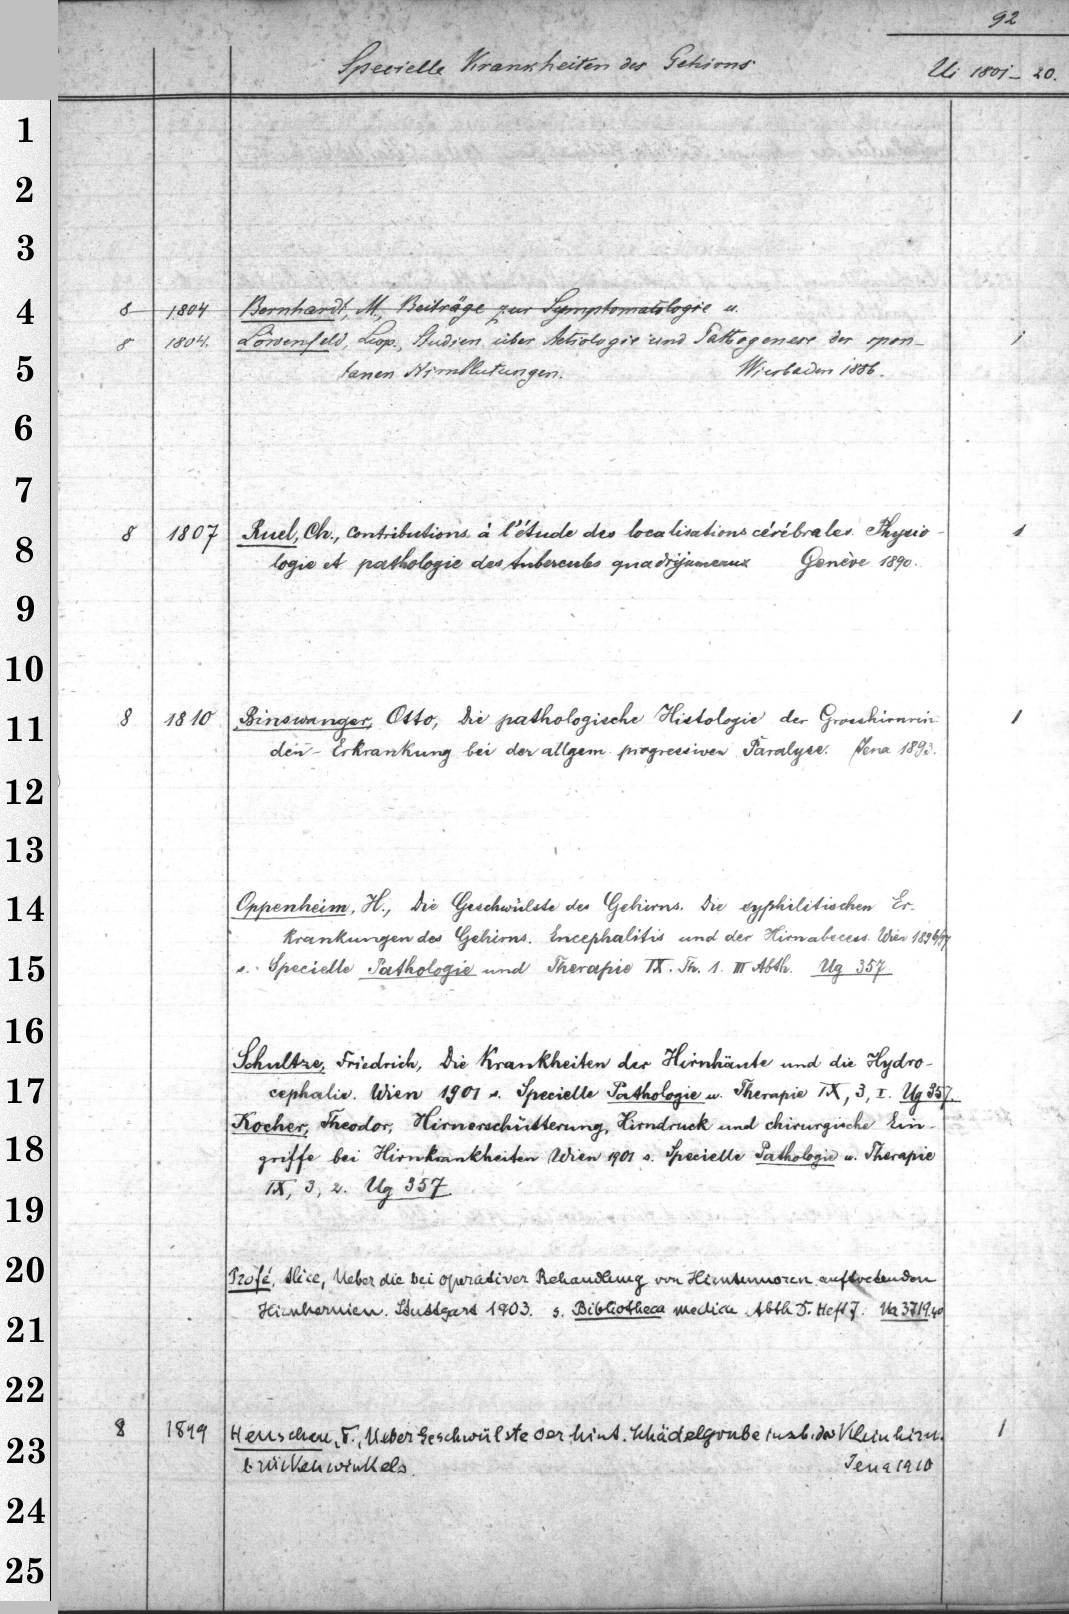 92
Specielle Krankheiten des Gehirns
Ui 1801-20.
1
2
3
4
8 1804 Bernhardt, M., Beiträge zur Symptomatologie u.
8 1804. Löwenfeld, Leop., Studien über Aetiologie und Pathogenese der spon- 1
5
tanen Hirnblutungen. Wiesbaden 1886.
6
7
8 1807 Ruel, Ch., contributions à l'étude des localisations cérébrales. Physio- 1
8
logie et pathologie des tubercules quadrijumeaux Genève 1890.
9
10
8 1810 Binswanger, Otto, Die pathologische Histologie der Grosshirnrin 1
11
den-Erkrankung bei der allgem. progressiven Paralyse. Jena 1893.
12
13
14
Oppenheim, H., Die Geschwülste des Gehirns. Die syphilitischen Er-
krankungen des Gehirns. Encephalitis und der Hirnabscess. Wien 1896/97
15
s. Specielle Pathologie und Therapie IX. Th. 1. III Abth. Ug 357
16
Schultze, Friedrich, Die Krankheiten der Hirnhäute und die Hydro-
17
cephalie. Wien 1901 s. Specielle Pathologie u. Therapie IX, 3, I. Ug 357.
Kocher, Theodor, Hirnerschütterung, Hirndruck und chirurgische Ein-
18
griffe bei Hirnkrankheiten Wien 1901 s. Specielle Pathologie u. Therapie
IX, 3, 2. Ug 357
19
20
Profé, Alice, Ueber die bei operativer Behandlung von Hirntumoren auftretenden
Hirnhernien. Stuttgart 1903. s. Bibliotheca medica Abth D. Heft 7. Ua 3719.40
21
22
8 1819 Henschen, F., Ueber Geschwülste der hint. Schädelgrube insb. des Kleinhirn- 1
23
brückenwinkels. Jena 1910
24
25